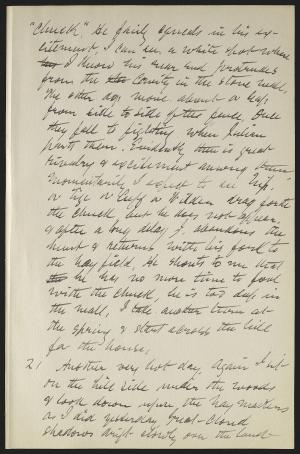 "Chuck." He fairly squeals in his ex-
citement. I can see a white spot where
I know his rear end protrudes
from the cavity in the stone wall.
The other dogs move about or leap
from side to side of the fence. Once
they fall to fighting when Julian
parts them. Evidently there is great
rivalry & excitement among them.
Momentarily I expect to see
or or drag forth
the chuck, but he does not appear.
& after a long delay J. abandons the
hunt & returns with his ford to
the hay field. He shouts to me that
he has no more time to fool
with the chuck, he is too deep in
the wall. I take another turn at
the spring & start across the hill
for the house.
21 Another very hot day. Again I sit
on the hill side under the woods
& look down upon the hay makers
as I did yesterday. Great cloud
shadows drift slowly over the land-